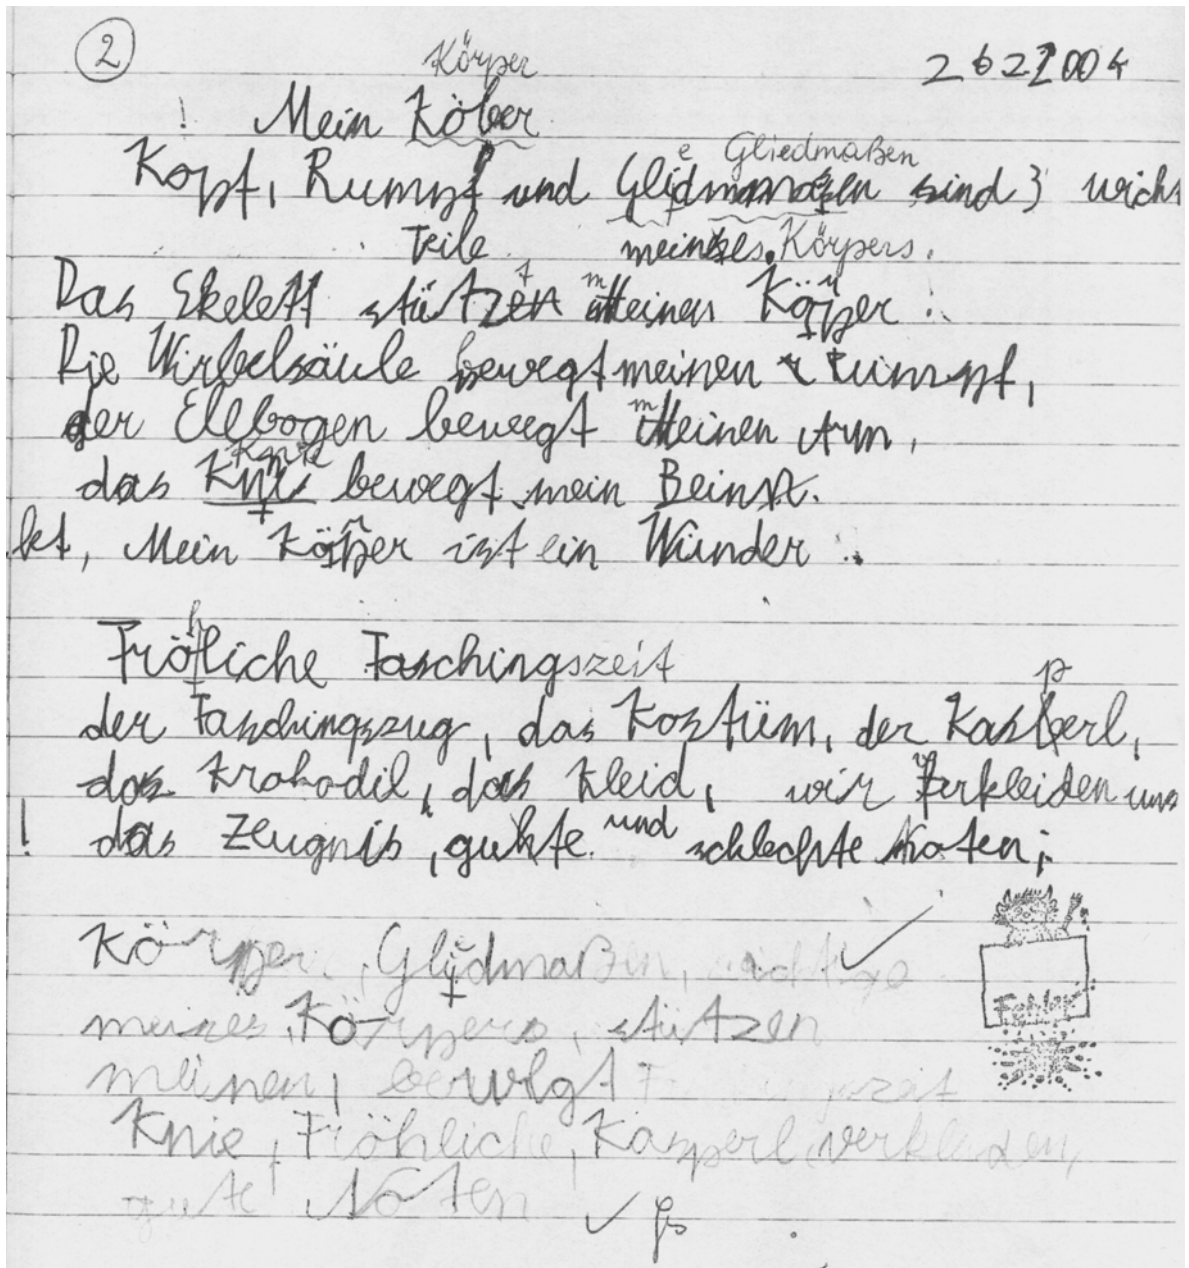 2
Körper
2622004
! Mein Köber
e Gliedmaßen
Kopf, Rumpf und sind 3 wich
Teile meines Körpers.
Das Skelett stützen meinen Körper.
Die Wirbelsäule bewegt meinen Rumpf,
der Ellbogen bewegt meinen Arm,
Knie
das Kni bewegt mein Bein
kt, Mein Körper ist ein Wunder.
Fröhliche Faschingszeit
p
der Faschingszug, das Kostüm, der Kasberl,
das Krokodil, das Kleid, wir verkleiden uns
! das Zeugnis, guhte und schlechte Noten,
Körper, Glidmaßen, wichtige
meines Körpers, stützen
meinen, bewegt
Fehler
Knie, Fröhliche, Kasperl, verkleiden,
gute Noten